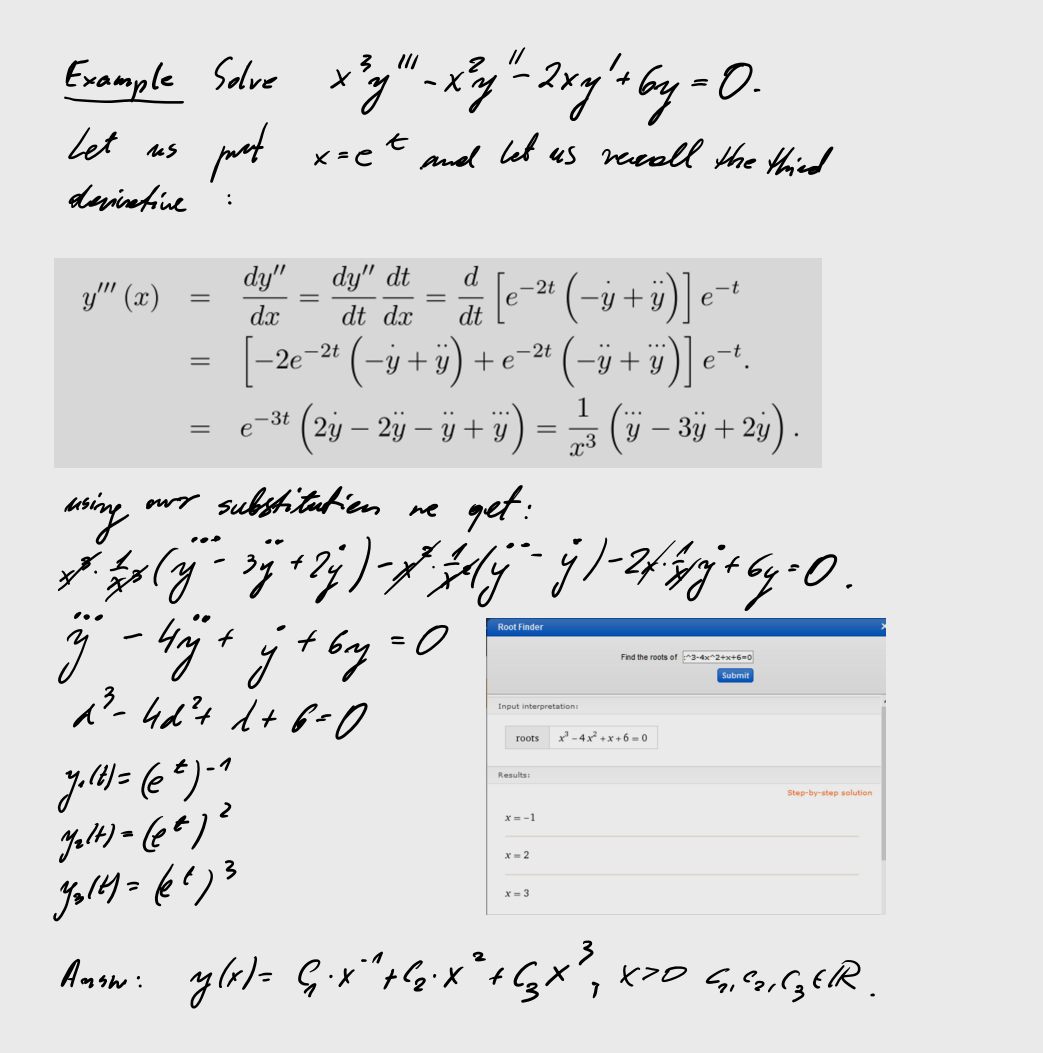 Example Solve x³y''' - x²y'' - 2xy' + 6y = 0.
Let us put x = e^t and let us recall the third
derivative :
y'''(x) = dy''/dx = dy''/dt dt/dx = d/dt [e^{-2t} (-ẏ + ÿ)] e^{-t}
= [-2e^{-2t} (-ẏ + ÿ) + e^{-2t} (-ÿ + y⃛)] e^{-t}.
= e^{-3t} (2ẏ - 2ÿ - ÿ + y⃛) = 1/x³ (y⃛ - 3ÿ + 2ẏ).
using our substitution we get:
x³ · 1/x³ (y⃛ - 3ÿ + 2ẏ) - x² · 1/x² (ÿ - ẏ) - 2x · 1/x ẏ + 6y = 0.
y⃛ - 4ÿ + ẏ + 6y = 0
λ³ - 4λ² + λ + 6 = 0
y₁(t) = (e^t)^{-1}
y₂(t) = (e^t)^2
y₃(t) = (e^t)^3
Root Finder
Find the roots of :^3-4x^2+x+6=0
Submit
Input interpretation:
roots x³ - 4x² + x + 6 = 0
Results:
Step-by-step solution
x = -1
x = 2
x = 3
Answ: y(x) = C₁·x^{-1} + C₂·x² + C₃x³, x>0 C₁, C₂, C₃ ∈ ℝ.